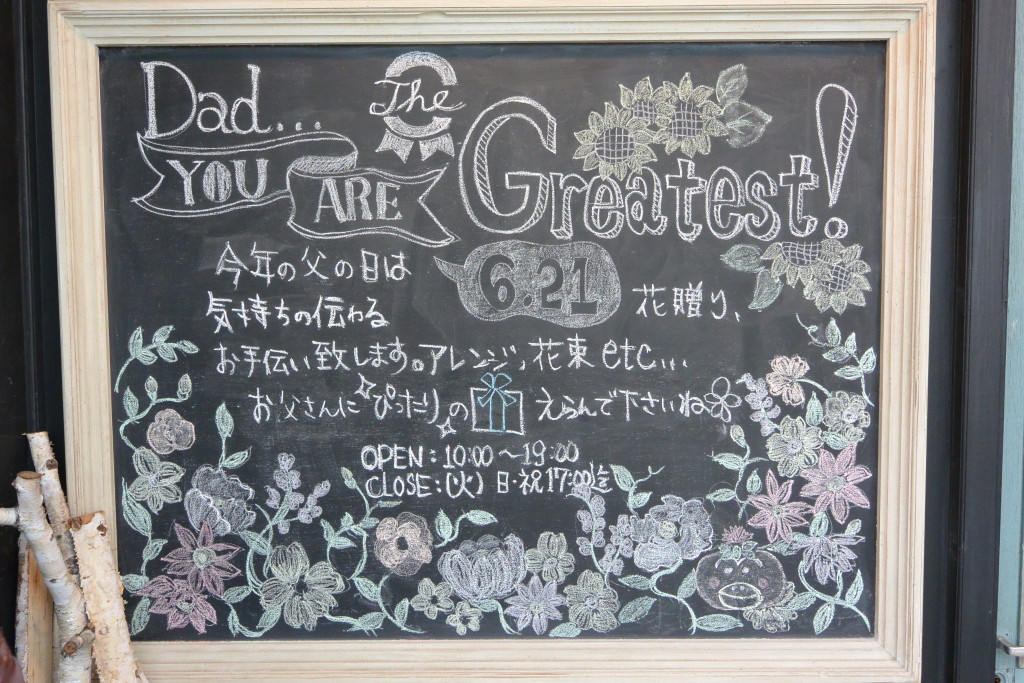 Dad... The
YOU ARE Greatest!
今年の父の日は 6.21 花贈り、
気持ちの伝わる
お手伝い致します。アレンジ, 花束 etc...
お父さんに ぴったり の えらんで下さいね
OPEN: 10:00 〜 19:00
CLOSE: (火) 日・祝 17:00迄